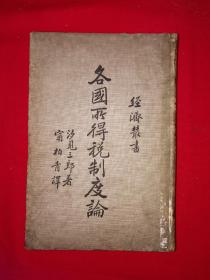 經濟叢書
各國所得稅制度論
汐見三郎著
甯柏青譯